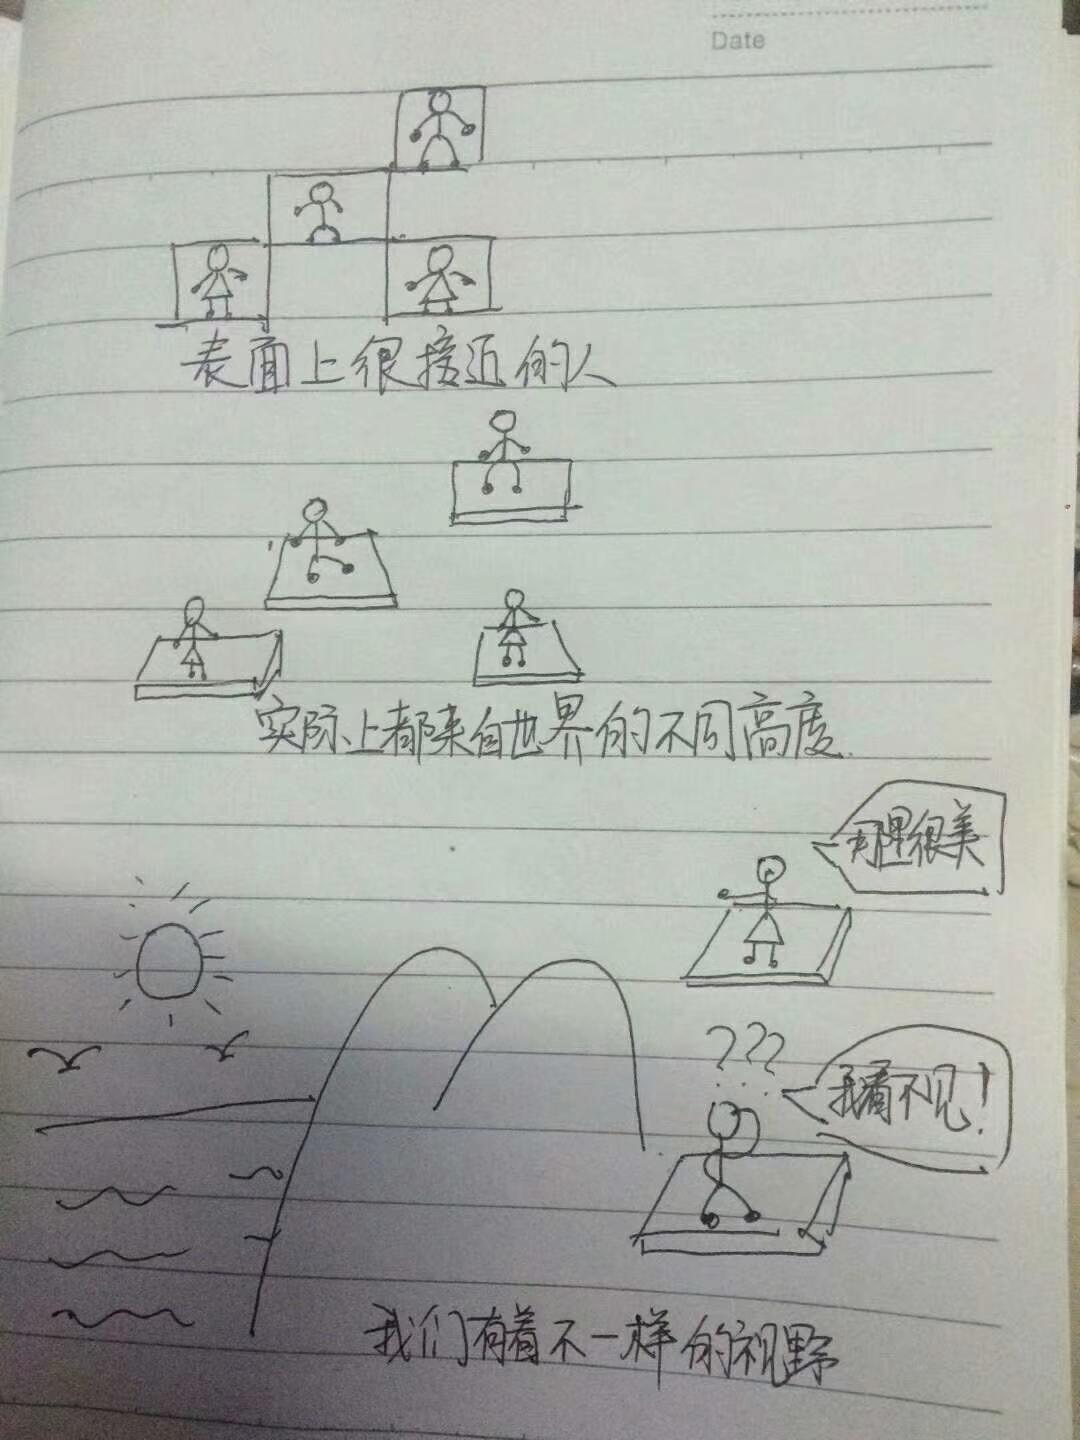 Date
表面上很接近的人
实际上都来自世界的不同高度.
那里很美
???
我看不见!
我们有着不一样的视野